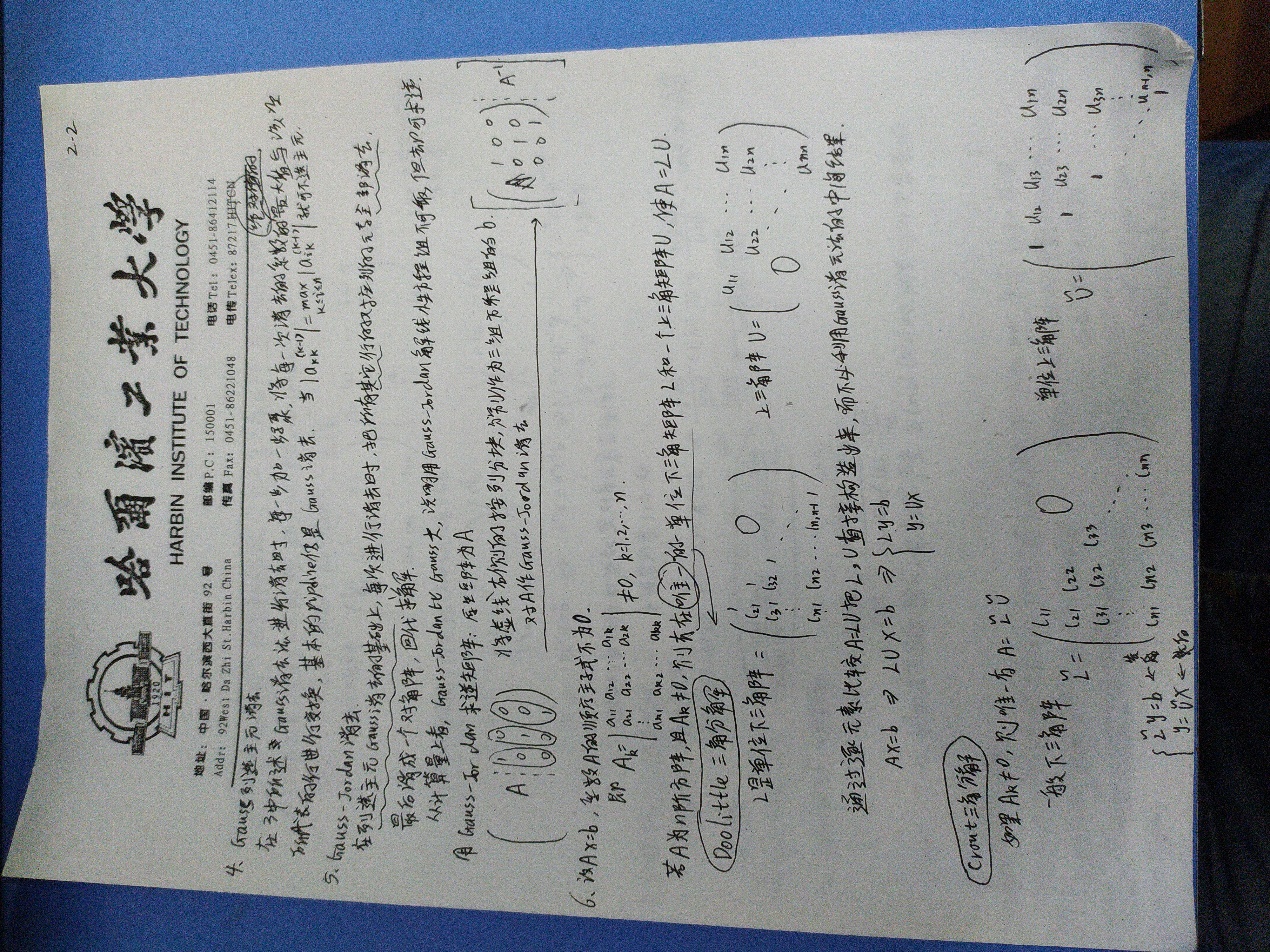 2-2
1920
HIT
哈爾濱工業大學
HARBIN INSTITUTE OF TECHNOLOGY
地址：中国·哈尔滨西大直街 92 号 邮编 P.C：150001 电话 Tel：0451-86412114
Addr：92West Da Zhi St.Harbin China 传真 Fax：0451-86221048 电传 Telex：87217HITCN
4、Gauss列选主元消去
绝对值的
在3中所述Gauss消去法进行消去时，每一步加一步骤，将每一次消去的系数的最大值与该次
所代表的行进行交换，基本的pipeline仍是Gauss消去. 当|a_kk^(k-1)|=max_{k≤i≤n}|a_ik^(k-1)|就可不选主元.
5、Gauss-Jordan消去.
在列选主元Gauss消去的基础上，每次进行消去时，把所有其它行的对应列的元素全部消去.
最后消成一个对角阵，回代求解.
从计算量上看，Gauss-Jordan比Gauss大，说明用Gauss-Jordan解线性方程组不可取，但却可求逆.
用Gauss-Jordan求逆矩阵：原矩阵为A
A 1 0 0
0 1 0
0 0 1
将虚线右侧的按列分块，分别作为三组方程组的b.
对A作Gauss-Jordan消去
1 0 0
0 1 0
0 0 1
A^-1
6、设Ax=b，系数A的顺序主子式不为0.
即 A_k= a11 a12 ⋯ a1k
a21 a22 ⋯ a2k
⋮
ak1 ak2 ⋯ akk
≠0, k=1,2,⋯,n.
若A为n阶方阵,且A_k≠0,则存在唯一的一单位下三角矩阵L和一个上三角矩阵U,使A=LU.
Doolittle三角分解
L是单位下三角阵=
1
l21 1 0
l31 l32 1
⋮
ln1 ln2 ⋯ ln,n-1 1
上三角阵U=
u11 u12 ⋯ u1n
u22 ⋯ u2n
0 ⋱ ⋮
unn
通过逐元素比较A=LU把L，U直接构造出来，而不必利用Gauss消元法的中间结果.
AX=b ⇒ LUX=b ⇒ { Ly=b
y=UX
Crout三角分解
如果A_k≠0，则唯一有A=L̃Ũ
一般下三角阵 L̃=
l11
l21 l22 0
l31 l32 l33
⋮ ⋱
ln1 ln2 ln3 ⋯ lnn
单位上三角阵 Ũ=
1 u12 u13 ⋯ u1n
1 u23 ⋯ u2n
1 ⋯ u3n
⋮
⋱ un-1,n
1
L̃y=b ←
y=ŨX ←